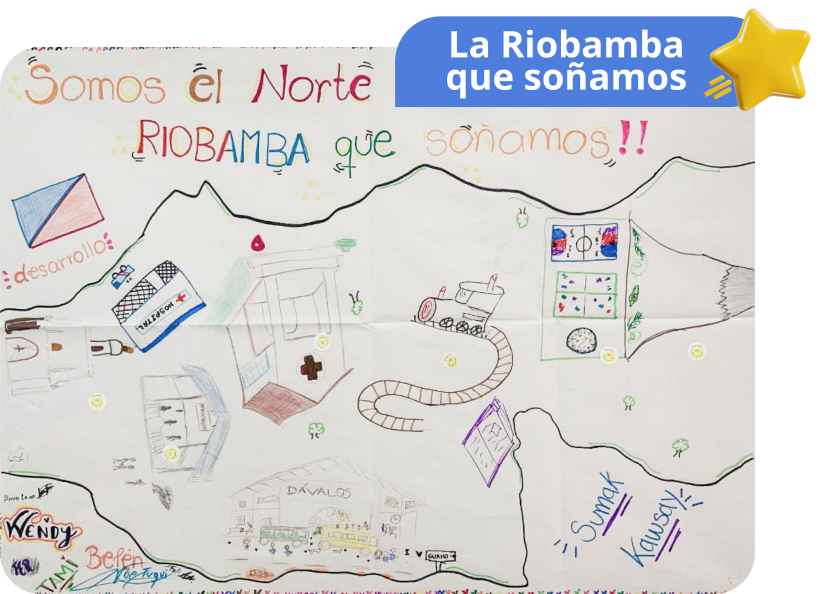 La Riobamba
que soñamos
Somos el Norte
RIOBAMBA que soñamos!!
desarrollo
HOSPITAL
DÁVALOS
I ♥
GUANO
Sumak
Kawsay
WENDY
Belén
TAMI